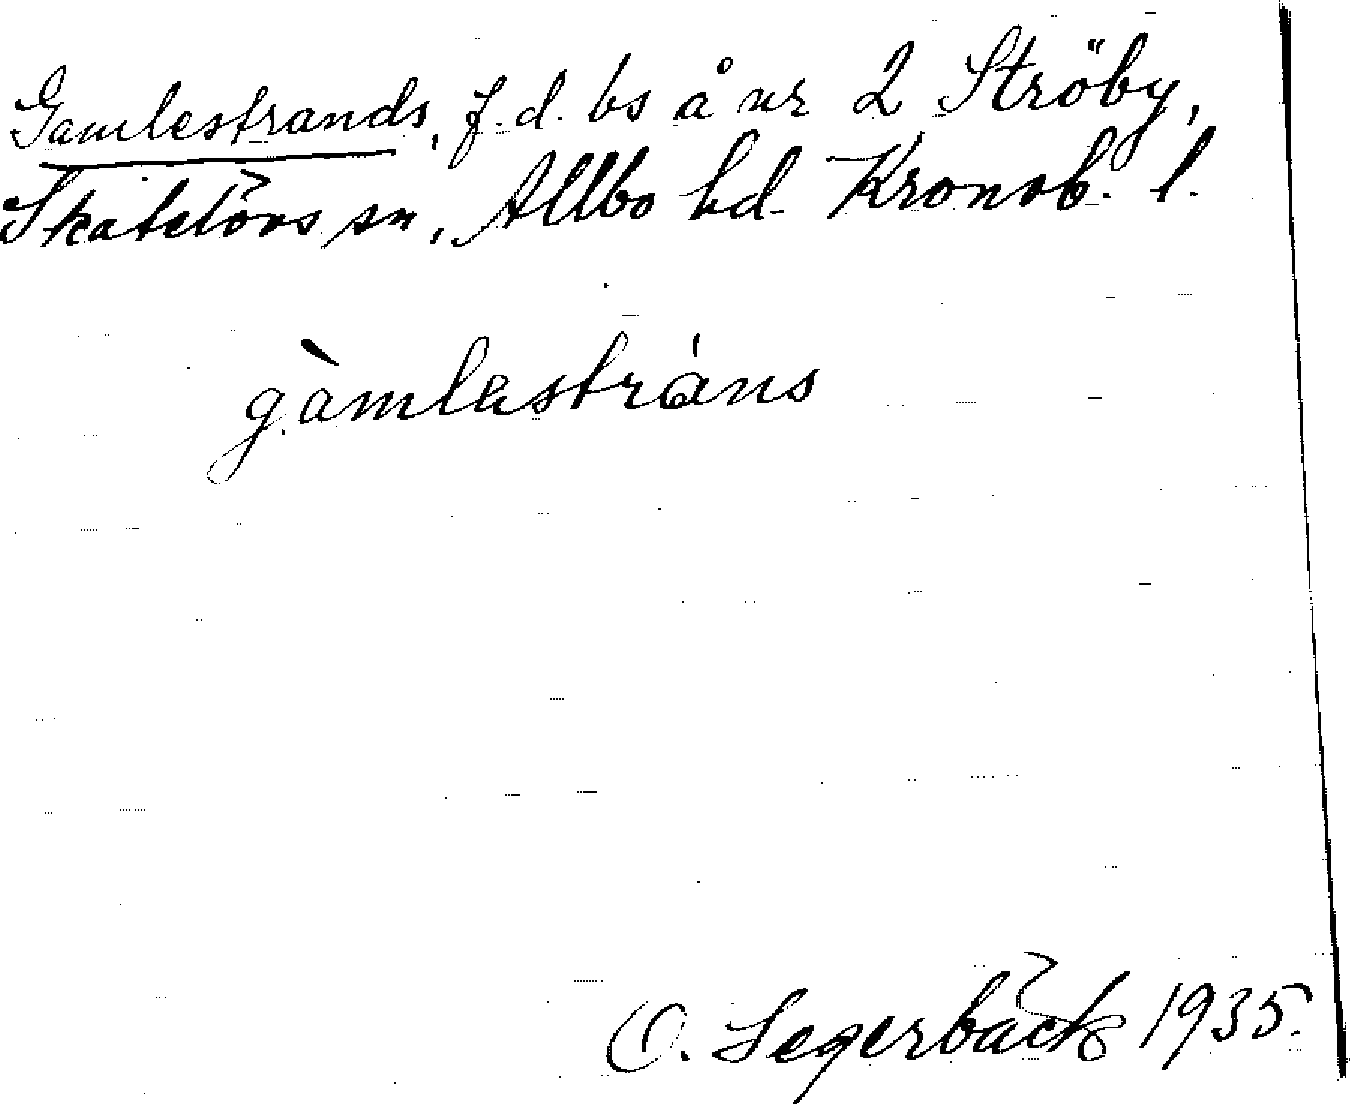 Gamlestrands, f.d. bs å nr 2 Ströby,
Skatelövs sn, Allbo hd. Kronob. l.
gàmlestráns
O. Segerbäck 1935.